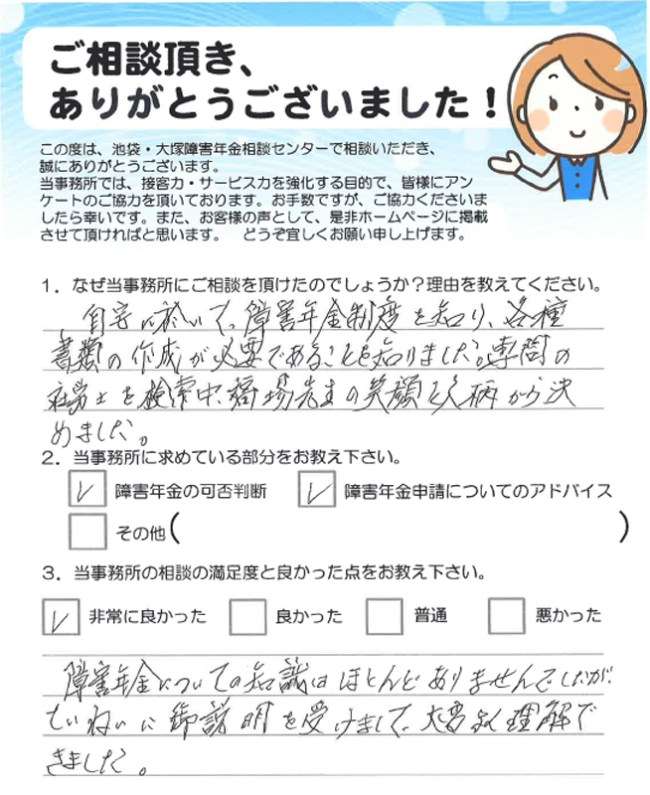 ご相談頂き、
ありがとうございました！
この度は、池袋・大塚障害年金相談センターで相談いただき、
誠にありがとうございます。
当事務所では、接客力・サービス力を強化する目的で、皆様にアン
ケートのご協力を頂いております。お手数ですが、ご協力くださいま
したら幸いです。また、お客様の声として、是非ホームページに掲載
させて頂ければと思います。 どうぞ宜しくお願い申し上げます。
1．なぜ当事務所にご相談を頂けたのでしょうか？理由を教えてください。
自宅に於いて、障害年金制度を知り、各種
書類の作成が必要であることを知りました。専門の
社労士を検索中、先生の笑顔と人柄から決
めました。
2．当事務所に求めている部分をお教え下さい。
障害年金の可否判断 障害年金申請についてのアドバイス
その他( )
3．当事務所の相談の満足度と良かった点をお教え下さい。
非常に良かった 良かった 普通 悪かった
障害年金についての知識はほとんどありませんでしたが、
ていねいに御説明を受けまして、大変よく理解で
きました。